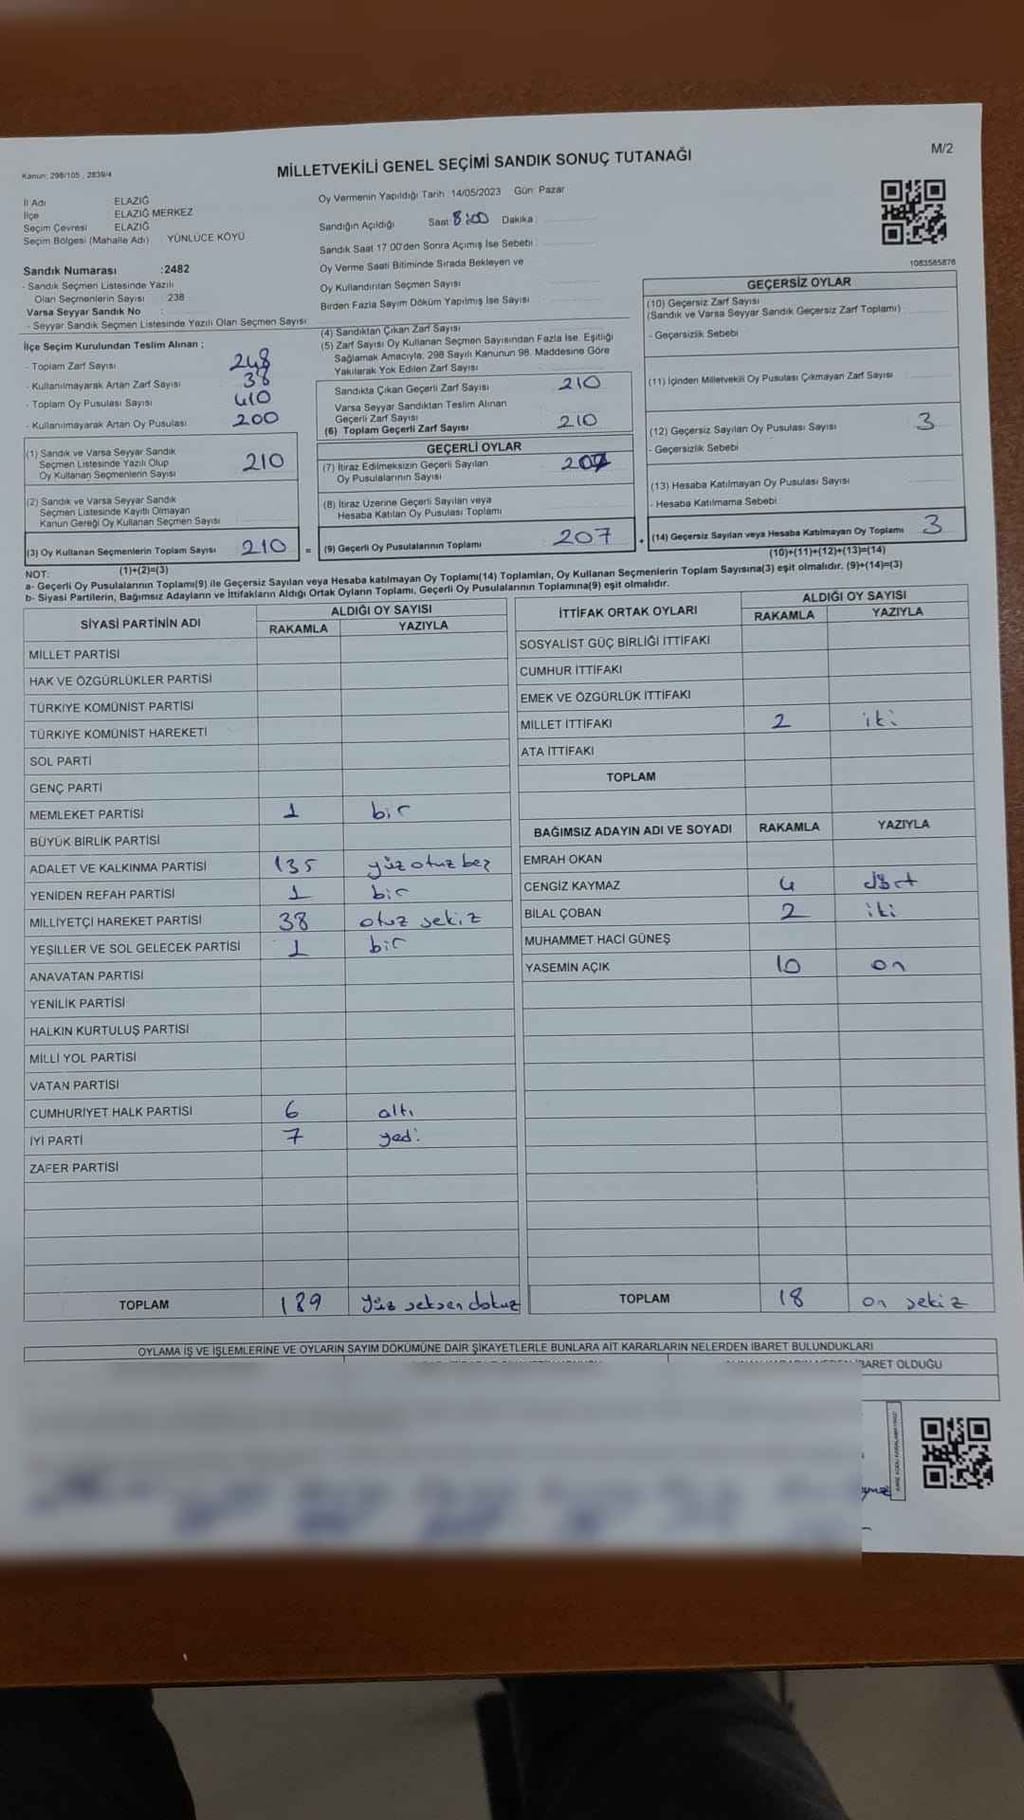 Kanun: 298/105 , 2839/4
MİLLETVEKİLİ GENEL SEÇİMİ SANDIK SONUÇ TUTANAĞI
M/2
İl Adı ELAZIĞ
İlçe ELAZIĞ MERKEZ
Seçim Çevresi ELAZIĞ
Seçim Bölgesi (Mahalle Adı) YÜNLÜCE KÖYÜ
Sandık Numarası :2482
- Sandık Seçmen Listesinde Yazılı
Olan Seçmenlerin Sayısı 238
Varsa Seyyar Sandık No
- Seyyar Sandık Seçmen Listesinde Yazılı Olan Seçmen Sayısı
Oy Vermenin Yapıldığı Tarih 14/05/2023 Gün: Pazar
Sandığın Açıldığı Saat 8:00 Dakika
Sandık Saat 17:00'den Sonra Açımış İse Sebebi
Oy Verme Saati Bitiminde Sırada Bekleyen ve
Oy Kullandırılan Seçmen Sayısı
Birden Fazla Sayım Döküm Yapılmış İse Sayısı
1083585876
İlçe Seçim Kurulundan Teslim Alınan ;
- Toplam Zarf Sayısı 248
- Kullanılmayarak Artan Zarf Sayısı 38
- Toplam Oy Pusulası Sayısı 410
- Kullanılmayarak Artan Oy Pusulası 200
(1) Sandık ve Varsa Seyyar Sandık
Seçmen Listesinde Yazılı Olup
Oy Kullanan Seçmenlerin Sayısı 210
(2) Sandık ve Varsa Seyyar Sandık
Seçmen Listesinde Kayıtlı Olmayan
Kanun Gereği Oy Kullanan Seçmen Sayısı
(3) Oy Kullanan Seçmenlerin Toplam Sayısı 210 =
(1)+(2)=(3)
(4) Sandıktan Çıkan Zarf Sayısı
(5) Zarf Sayısı Oy Kullanan Seçmen Sayısından Fazla İse, Eşitliği
Sağlamak Amacıyla, 298 Sayılı Kanunun 98. Maddesine Göre
Yakılarak Yok Edilen Zarf Sayısı
Sandıkta Çıkan Geçerli Zarf Sayısı 210
Varsa Seyyar Sandıktan Teslim Alınan
Geçerli Zarf Sayısı
(6) Toplam Geçerli Zarf Sayısı 210
GEÇERLİ OYLAR
(7) İtiraz Edilmeksizin Geçerli Sayılan
Oy Pusulalarının Sayısı 207
(8) İtiraz Üzerine Geçerli Sayılan veya
Hesaba Katılan Oy Pusulası Toplamı
(9) Geçerli Oy Pusulalarının Toplamı 207
GEÇERSİZ OYLAR
(10) Geçersiz Zarf Sayısı
(Sandık ve Varsa Seyyar Sandık Geçersiz Zarf Toplamı)
- Geçersizlik Sebebi
(11) İçinden Milletvekili Oy Pusulası Çıkmayan Zarf Sayısı
(12) Geçersiz Sayılan Oy Pusulası Sayısı 3
- Geçersizlik Sebebi
(13) Hesaba Katılmayan Oy Pusulası Sayısı
- Hesaba Katılmama Sebebi
(14) Geçersiz Sayılan veya Hesaba Katılmayan Oy Toplamı 3
(10)+(11)+(12)+(13)=(14)
NOT:
a- Geçerli Oy Pusulalarının Toplamı(9) ile Geçersiz Sayılan veya Hesaba katılmayan Oy Toplamı(14) Toplamları, Oy Kullanan Seçmenlerin Toplam Sayısına(3) eşit olmalıdır. (9)+(14)=(3)
b- Siyasi Partilerin, Bağımsız Adayların ve İttifakların Aldığı Ortak Oyların Toplamı, Geçerli Oy Pusulalarının Toplamına(9) eşit olmalıdır.
SİYASİ PARTİNİN ADI
ALDIĞI OY SAYISI
RAKAMLA YAZIYLA
MİLLET PARTİSİ
HAK VE ÖZGÜRLÜKLER PARTİSİ
TÜRKİYE KOMÜNİST PARTİSİ
TÜRKİYE KOMÜNİST HAREKETİ
SOL PARTİ
GENÇ PARTİ
MEMLEKET PARTİSİ 1 bir
BÜYÜK BİRLİK PARTİSİ
ADALET VE KALKINMA PARTİSİ 135 yüz otuz beş
YENİDEN REFAH PARTİSİ 1 bir
MİLLİYETÇİ HAREKET PARTİSİ 38 otuz sekiz
YEŞİLLER VE SOL GELECEK PARTİSİ 1 bir
ANAVATAN PARTİSİ
YENİLİK PARTİSİ
HALKIN KURTULUŞ PARTİSİ
MİLLİ YOL PARTİSİ
VATAN PARTİSİ
CUMHURİYET HALK PARTİSİ 6 altı
İYİ PARTİ 7 yedi
ZAFER PARTİSİ
TOPLAM 189 yüz seksen dokuz
İTTİFAK ORTAK OYLARI
ALDIĞI OY SAYISI
RAKAMLA YAZIYLA
SOSYALİST GÜÇ BİRLİĞİ İTTİFAKI
CUMHUR İTTİFAKI
EMEK VE ÖZGÜRLÜK İTTİFAKI
MİLLET İTTİFAKI 2 iki
ATA İTTİFAKI
TOPLAM
BAĞIMSIZ ADAYIN ADI VE SOYADI RAKAMLA YAZIYLA
EMRAH OKAN
CENGİZ KAYMAZ 4 dört
BİLAL ÇOBAN 2 iki
MUHAMMET HACI GÜNEŞ
YASEMİN AÇIK 10 on
TOPLAM 18 on sekiz
OYLAMA İŞ VE İŞLEMLERİNE VE OYLARIN SAYIM DÖKÜMÜNE DAİR ŞİKAYETLERLE BUNLARA AİT KARARLARIN NELERDEN İBARET BULUNDUKLARI
İBARET OLDUĞU